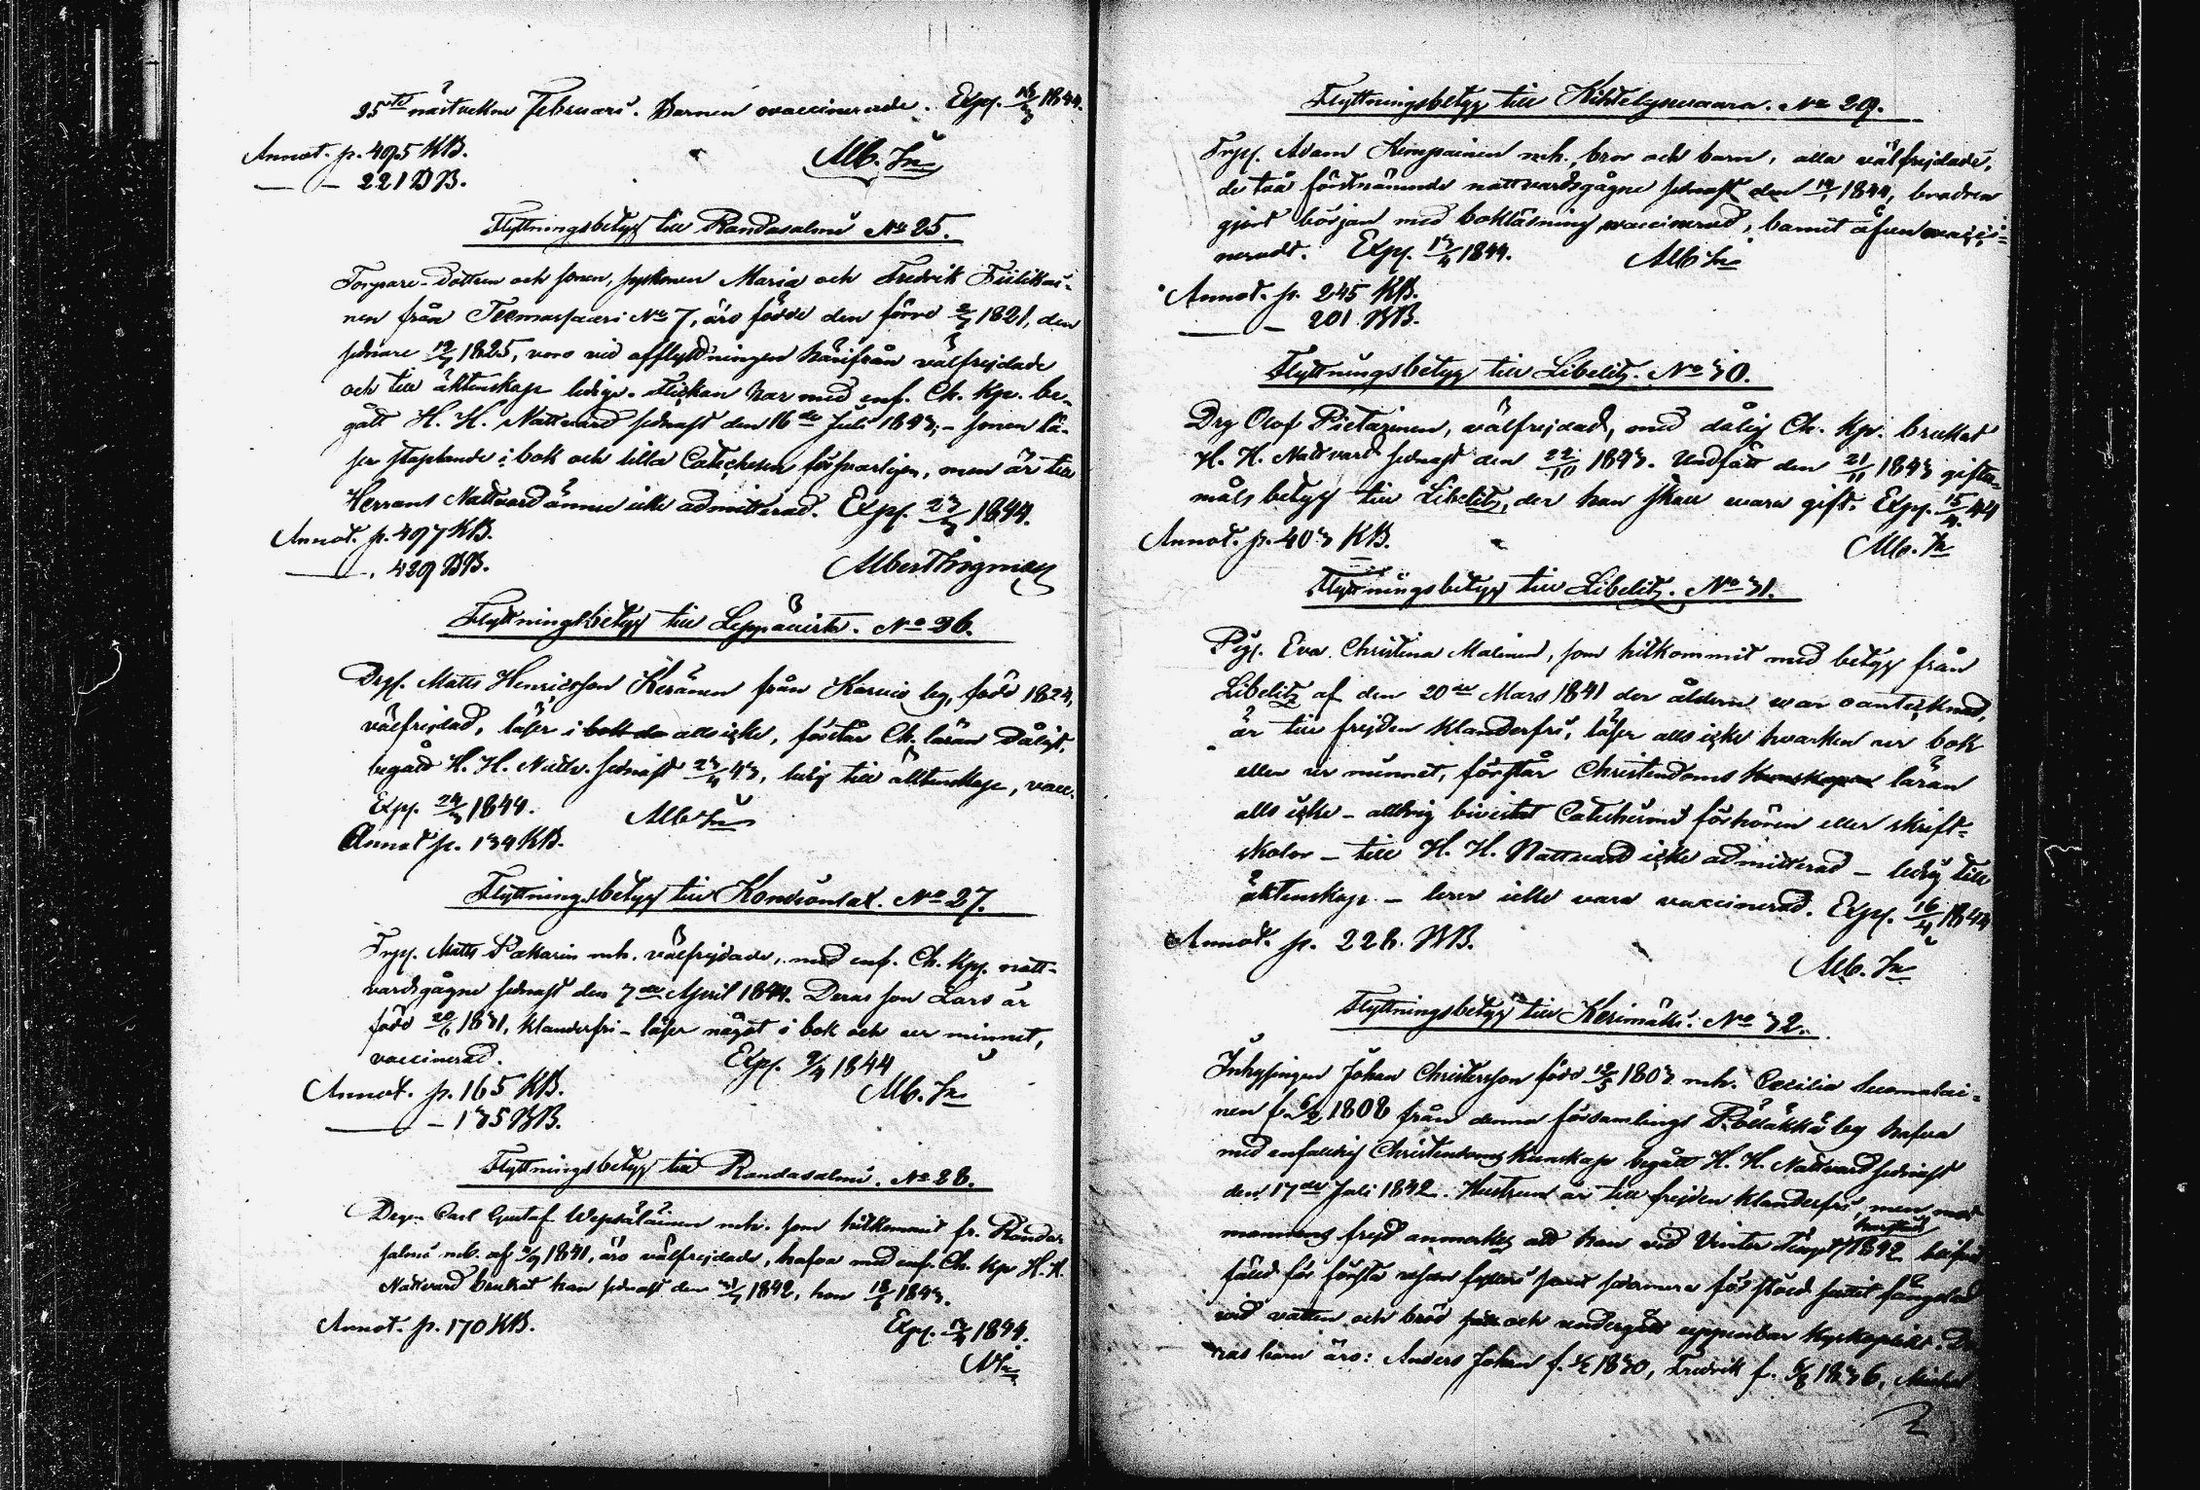 25te nästvikne Februari. Barnen ovaccinerade. Exp. 1844.
Annot. p. 495 KB.
Alb. Tr
— — 221 BB.
Flyttningsbetyg till Randasalmi No 25.
Torpare-dottren och sonen, syskonen Maria och Fredrik Tiilikai-
nen från No 7, äro födde den förre 1821, den
sednare 1825, voro vid afflyttningen härifrån välfrejdade
och till äktenskap ledige. Flickan har med enf. Ch. Kp. be-
gått H. H. Nattvard sednast den 16de Juli 1843, – sonen lä-
ser staplande i bok och lilla Catechesen försvarligen, men är till
Herrans Nattvard ännu icke admitterad. Exp. 23/3 1844.
Annot. p. 497 KB.
—— 429 BB.
Flyttningsbetyg till Leppävirta. No 26.
Drgn. Matts Henricsson Keränen från by, född 1824,
välfrejdad, läser i alls icke, förstår Ch. läran dåligt,
begått H. H. Nattv. sednast 23/4 43, ledig till äktenskap, vacc.
Exp. 24/3 1844. Alb. Tr
Annot p. 134 KB.
Flyttningsbetyg till Kontiolax. No 27.
Trp. Matts Pakarin mh. välfrejdade, med enf. Ch. Kp. natt-
vardsgågne sednast den 7de April 1844. Deras son Lars är
född 20/6 1831, klanderfri – läser något i bok och ur minnet,
vaccinerad. Exp. 9/4 1844
Annot. p. 165 KB. Alb. Tr
—— – 135 BB.
Flyttningsbetyg till Randasalmi. No 28.
Drgn Carl Gustaf Wepsäläinen mh. som hitkommit fr. Randa-
salmi mb. af 1841, äro välfrejdade, hafva med enf. Ch. Kp H. H.
Nattvard brukat han sednast den 1842, hon 1843.
Annot. p. 170 KB. Exp. 1844.
Flyttningsbetyg till Kihtelysvaara. No 29.
Trp. Adam Kimpainen mh. bror och barn, alla välfrejdade,
de två förstnämnde nattvardsgågne sednast den 1844, brodren
gjort början med bokläsning, vaccinerad, barnet äfven vacci-
neradt. Exp. 13/4 1844. Alb Tr
Annot. p. 245 KB.
—— – 201 BB.
Flyttningsbetyg till Libelitz. No 30.
Drg Olof Pietarinen, välfrejdad, med dålig Ch. Kp. brukat
H. H. Nattvard sednast den 22/10 1843. Undfått den 21/11 1843 gifta-
måls betyg till Libelitz, der han skall vara gift. Exp. 15/4 44
Annot. p. 403 KB. Alb. Tr
Flyttningsbetyg till Libelitz. No 31.
Pig. Eva Christina Malinen, som hitkommit med betyg från
Libelitz af den 20de Mars 1841 der åldern war oantecknad,
är till frejden klanderfri, läser alls icke hwarken ur bok
eller ur minnet, förstår Christendoms kunskapen läran
alls icke – aldrig bivistat Catechismi förhören eller skrift-
skolor – till H. H. Nattvard icke admitterad – ledig till
äktenskap – lerer icke vara vaccinerad. Exp. 16/4 1844
Annot. p. 228. BB.
Alb. Tr
Flyttningsbetyg till Kerimäki. No 32.
Inhysingen Johan Christersson född 1803 mh. Cecilia Suomalai-
nen f. 1808 från denna församlings by hafva
med enfaldig Christendoms kunskap begått H. H. Nattvard sednast
den 17de Juli 1842. Hustrun är till frejden klanderfri, men
mannens frejd anmärkes att han vid Vinter Tinget 1842
fälld för första resan för stöld fängelse
vid vatten och bröd och undergått uppenbar kyrkoplikt. De-
ras barn äro: Anders Johan f. 1830, Fredrik f. 1836, Michel